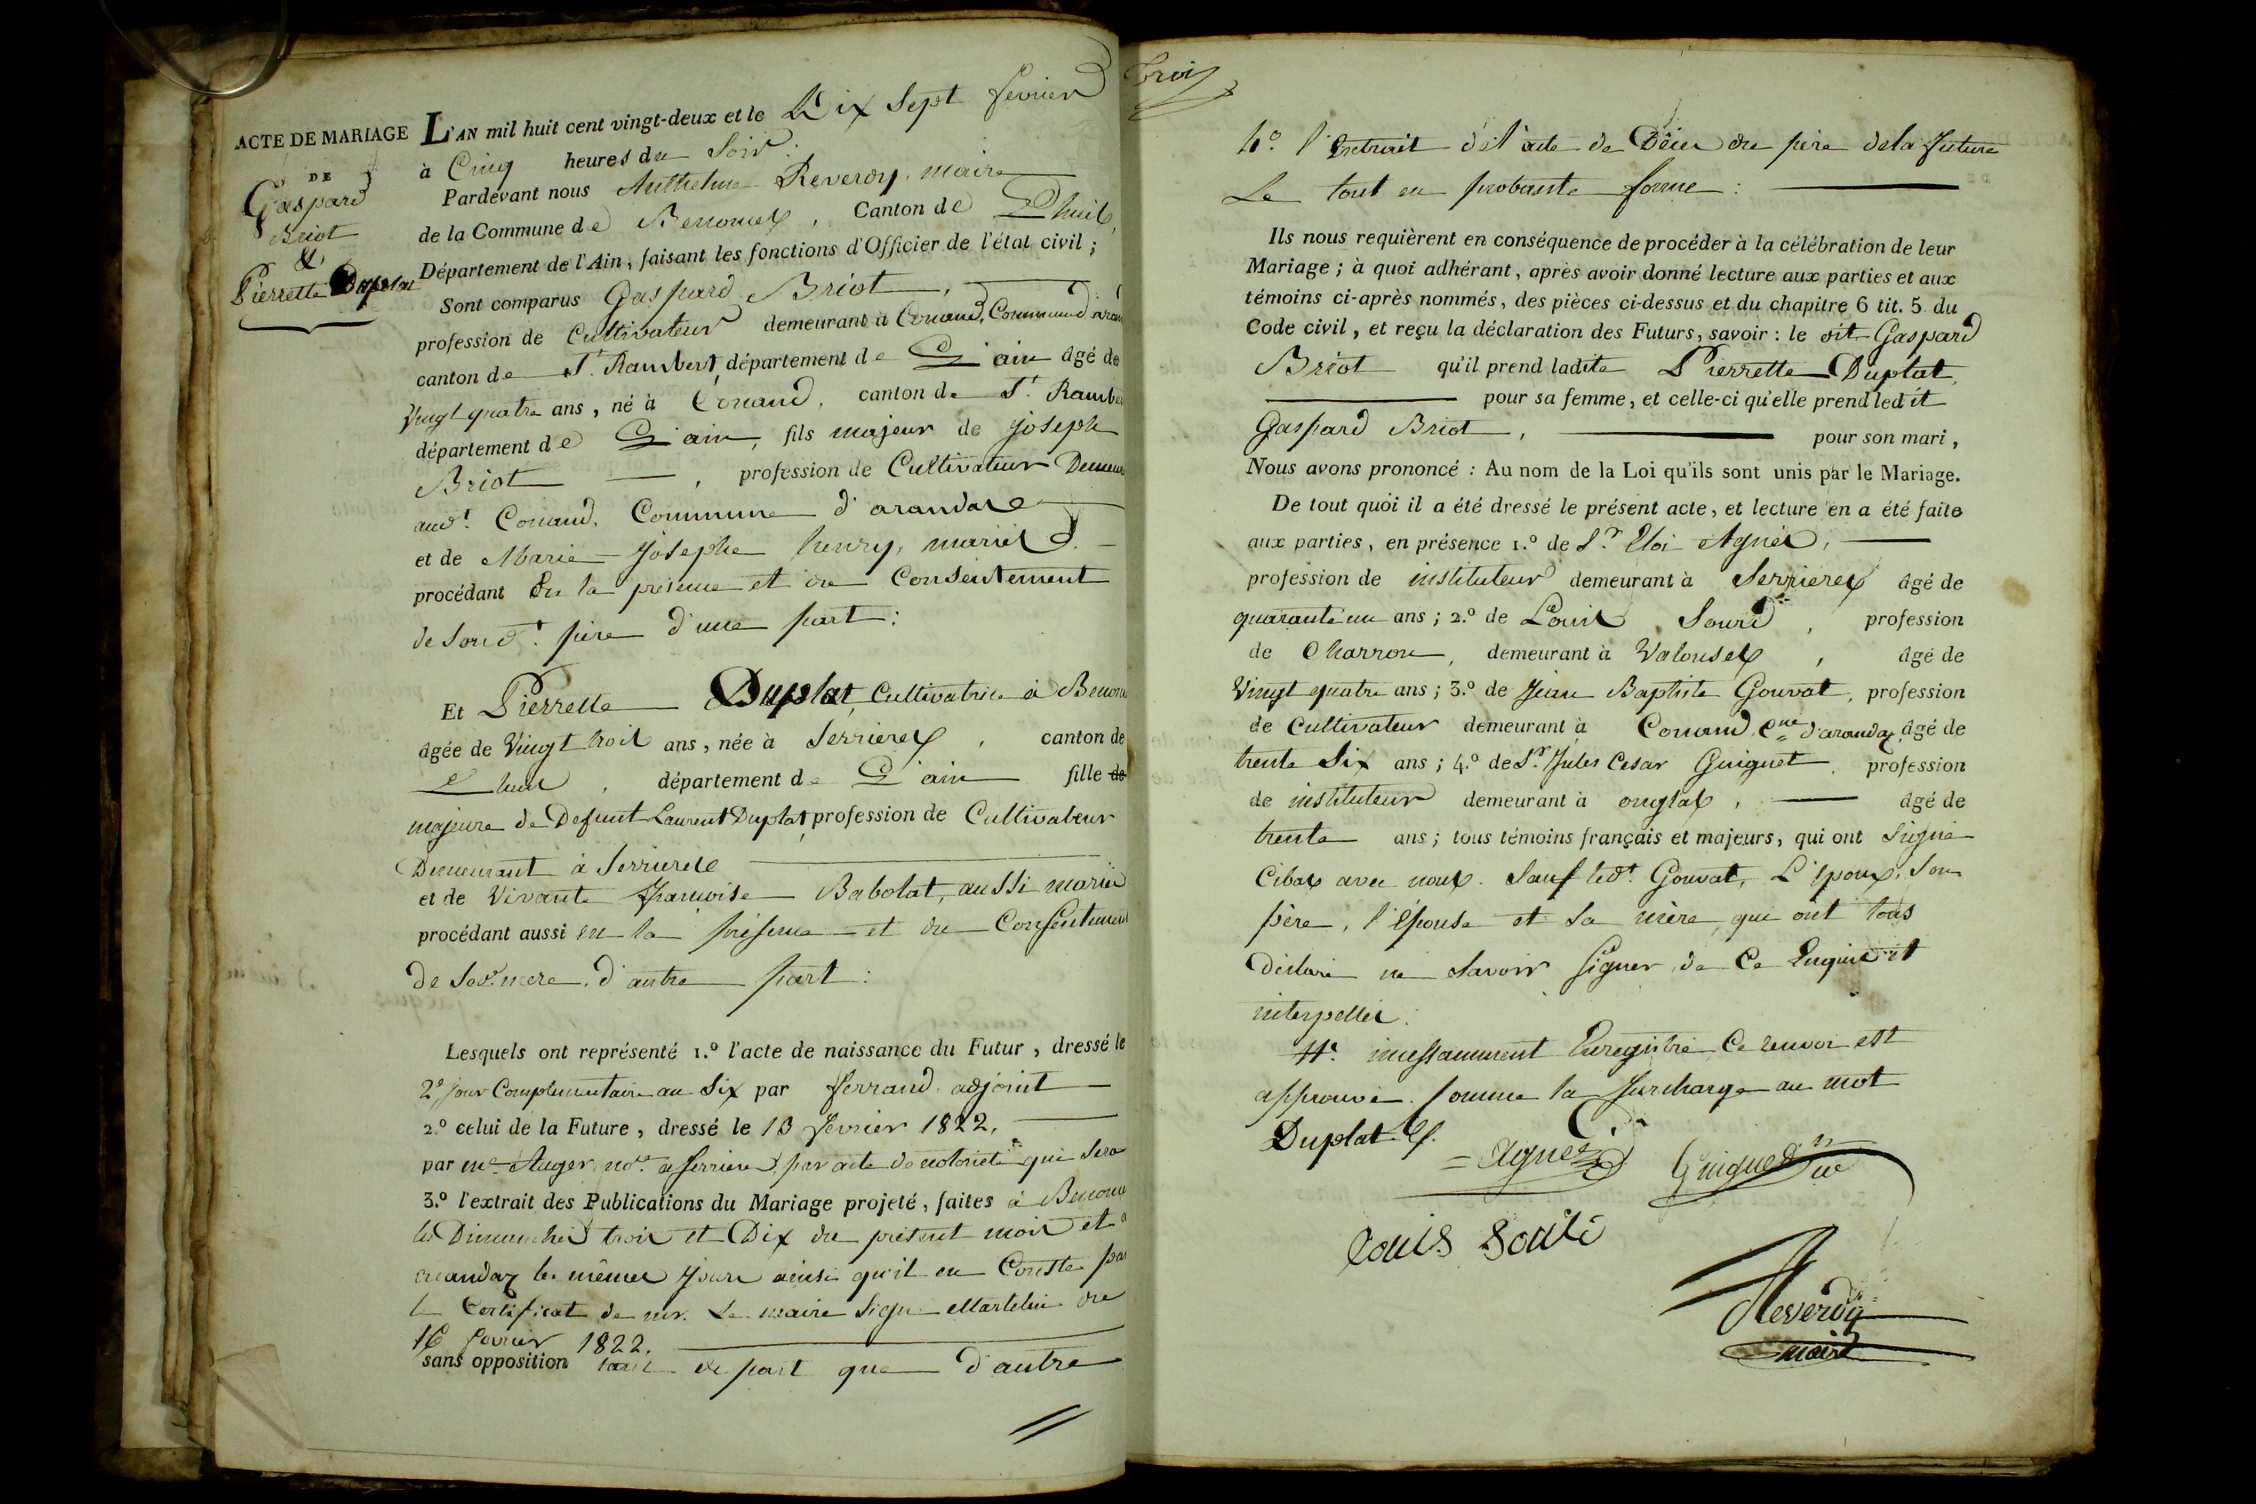 ACTE DE MARIAGE
DE
Gaspard
Briot
&
Pierrette Duplat
L'AN mil huit cent vingt-deux et le Dix Sept fevrier
à Cinq heures du Soir.
Pardevant nous Anthelme Reverdy, maire
de la Commune de Benonces, Canton de Lhuis,
Département de l'Ain, faisant les fonctions d'Officier de l'état civil;
Sont comparus Gaspard Briot,
profession de Cultivateur demeurant à Conand, Commune
canton de St. Rambert, département de L'ain âgé de
Vingt quatre ans, né à Conand, canton de St. Rambe
département de L'ain, fils majeur de joseph
Briot, profession de Cultivateur Demeur
audt. Conand, Commune d'arandas
et de Marie Josephe henry, mariés
procédant En la présence et du Consentement
de Sondt. père d'une part:
Et Pierrette Duplat, Cultivatrice à Benon
âgée de Vingt trois ans, née à Serrieres, canton de
Lhuis, département de L'ain fille de
majeure de Defunt Laurent Duplat, profession de Cultivateur
Demeurant à Serrieres
et de Vivante françoise Babolat, aussi mariés
procédant aussi en la présence et du Consentement
de Sad. mere, d'autre part:
Lesquels ont représenté 1.º l'acte de naissance du Futur, dressé le
2e. jour Complementaire an Six par ferrand adjoint
2.º celui de la Future, dressé le 13 fevrier 1822,
par me. Auger nore. a serrieres, par acte de notorieté qui Sera
3.º l'extrait des Publications du Mariage projeté, faites à Benon
les Dimanches trois et Dix du présent mois et a
arandaz les mêmes jours ainsi qu'il en Conste par
le Certificat de mr. Le maire Signé Martelin du
16 fevrier 1822.
sans opposition tant de part que d'autre
trois
4º. l'Extrait de l'acte de Décès du père de la future
Le tout en probante forme:
Ils nous requièrent en conséquence de procéder à la célébration de leur
Mariage; à quoi adhérant, après avoir donné lecture aux parties et aux
témoins ci-après nommés, des pièces ci-dessus et du chapitre 6 tit. 5 du
Code civil, et reçu la déclaration des Futurs, savoir: le dit Gaspard
Briot qu'il prend ladite Pierrette Duplat,
pour sa femme, et celle-ci qu'elle prend ledit
Gaspard Briot, pour son mari,
Nous avons prononcé: Au nom de la Loi qu'ils sont unis par le Mariage.
De tout quoi il a été dressé le présent acte, et lecture en a été faite
aux parties, en présence 1.º de Sr. Eloi Agnès,
profession de instituteur demeurant à Serrieres âgé de
quarante un ans; 2.º de Louis Sourd, profession
de Charron, demeurant à Valouses, âgé de
Vingt quatre ans; 3.º de Jean Baptiste Gouvat, profession
de Cultivateur demeurant à Conand, Cne. d'arandaz, âgé de
trente Six ans; 4.º de Sr. Jules Cesar Guiguet, profession
de instituteur demeurant à onglas, âgé de
trente ans; tous témoins français et majeurs, qui ont Signé
Cibas avec nous. Sauf ledt. Gouvat, L'époux, Son
père, l'épouse et Sa mère, qui ont tous
Déclaré ne Savoir Signer de Ce Enquis et
interpellés.
incessamment Enregistré Ce renvoi est
approuvé. Comme la Surcharge au mot
Duplat.
Agnes
Guiguet
Louis
Reverdy
maire